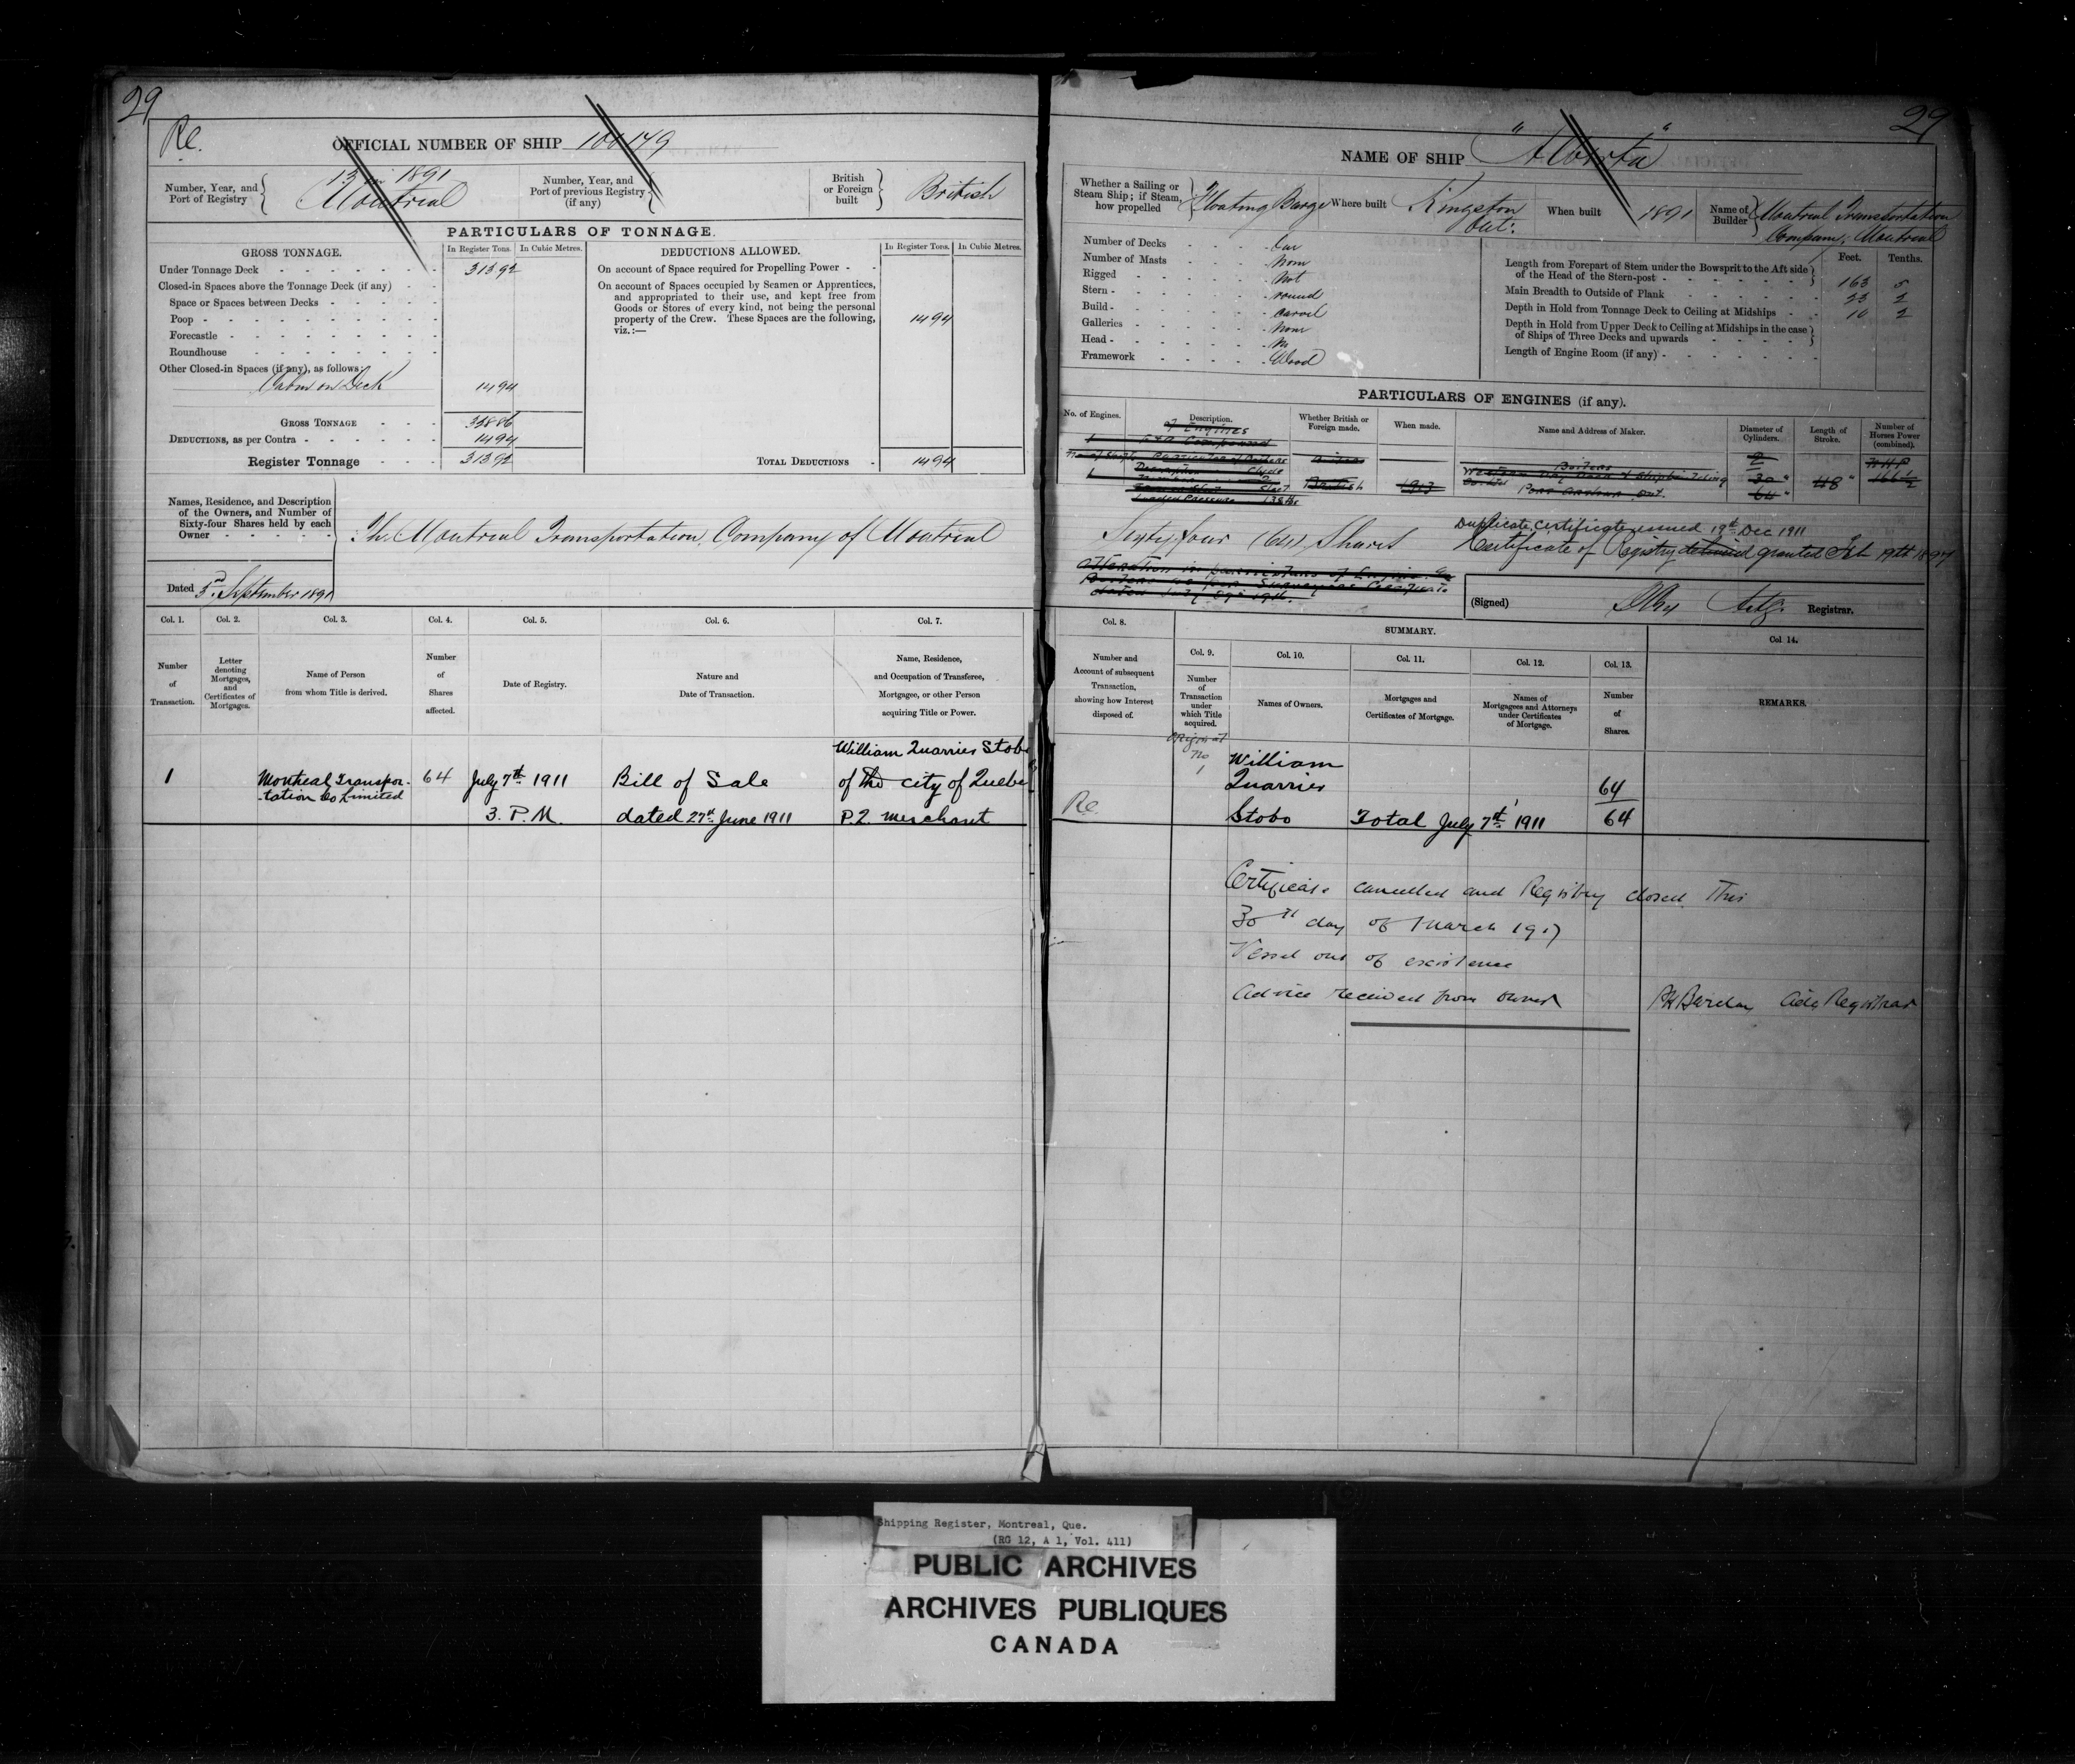 29
Re.
OFFICIAL NUMBER OF SHIP 100149
Number, Year, and Port of Registry
13 in 1891
Montreal
Number, Year, and Port of previous Registry (if any)
British or Foreign built
British
PARTICULARS OF TONNAGE.
GROSS TONNAGE.
In Register Tons. In Cubic Metres.
DEDUCTIONS ALLOWED.
In Register Tons. In Cubic Metres.
Under Tonnage Deck 313 92
Closed-in Spaces above the Tonnage Deck (if any)
Space or Spaces between Decks
Poop
Forecastle
Roundhouse
Other Closed-in Spaces (if any), as follows:
Cabin on Deck 14 94
GROSS TONNAGE 328 86
DEDUCTIONS, as per Contra 14 94
Register Tonnage 313 92
On account of Space required for Propelling Power
On account of Spaces occupied by Seamen or Apprentices,
and appropriated to their use, and kept free from
Goods or Stores of every kind, not being the personal
property of the Crew. These Spaces are the following,
viz.:— 14 94
TOTAL DEDUCTIONS 14 94
Names, Residence, and Description
of the Owners, and Number of
Sixty-four Shares held by each
Owner
The Montreal Transportation Company of Montreal
Dated 3rd September 1891
Col. 1. Col. 2. Col. 3. Col. 4. Col. 5. Col. 6. Col. 7.
Number of Transaction.
Letter denoting Mortgages, and Certificates of Mortgages.
Name of Person from whom Title is derived.
Number of Shares affected.
Date of Registry.
Nature and Date of Transaction.
Name, Residence, and Occupation of Transferee, Mortgagee, or other Person acquiring Title or Power.
William Quarries Stobo
1 Montreal Transpor- 64 July 7th 1911 Bill of Sale of the city of Quebec
-tation Co Limited
3. P.M. dated 27th June 1911 P.Q. merchant
29
NAME OF SHIP "Alberta"
Whether a Sailing or Steam Ship; if Steam, how propelled
Floating Barge
Where built
Kingston Ont:
When built
1891
Name of Builder
Montreal Transportation
Company, Montreal
Number of Decks One
Number of Masts None
Rigged Not
Stern round
Build carvel
Galleries None
Head No
Framework Wood
Feet. Tenths.
Length from Forepart of Stem under the Bowsprit to the Aft side
of the Head of the Stern-post 163 5
Main Breadth to Outside of Plank 23 2
Depth in Hold from Tonnage Deck to Ceiling at Midships 10 2
Depth in Hold from Upper Deck to Ceiling at Midships in the case
of Ships of Three Decks and upwards
Length of Engine Room (if any)
PARTICULARS OF ENGINES (if any).
No. of Engines.
Description.
Whether British or Foreign made.
When made.
Name and Address of Maker.
Diameter of Cylinders.
Length of Stroke.
Number of Horses Power (combined).
of Engines
Boilers
British
30"
64"
48"
NHP
166 1/2
Port Arthur Ont.
Sixty four (64) Shares
Duplicate certificate issued 19th Dec 1911
Certificate of Registry granted Feb 19th 1897
Alteration in particulars of Engine
(Signed)
Registrar.
Col. 8.
SUMMARY.
Col. 9. Col. 10. Col. 11. Col. 12. Col. 13. Col 14.
Number and Account of subsequent Transaction, showing how Interest disposed of.
Number of Transaction under which Title acquired.
Names of Owners.
Mortgages and Certificates of Mortgage.
Names of Mortgagees and Attorneys under Certificates of Mortgage.
Number of Shares.
REMARKS.
Original
No 1
William
Quarries 64
Re.
Stobo Total July 7th 1911 64
Certificate cancelled and Registry closed this
30th day of March 1917
Vessel out of existence
Advice received from owner
Actg Registrar
Shipping Register, Montreal, Que.
(RG 12, A 1, Vol. 411)
PUBLIC ARCHIVES
ARCHIVES PUBLIQUES
CANADA